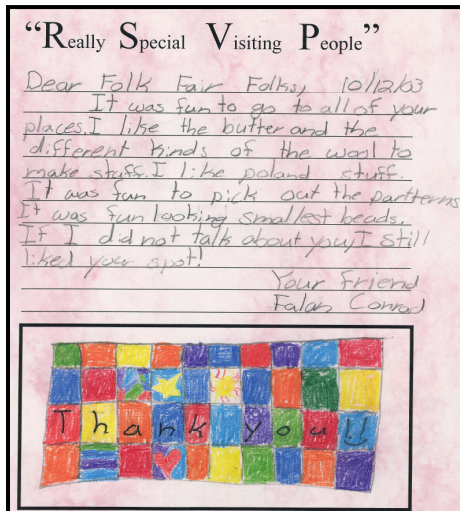 “Really Special Visiting People”
Dear Folk Fair Folks, 10/12/03
It was fun to go to all of your
places. I like the butter and the
different kinds of the wool to
make stuff. I like poland stuff.
It was fun to pick out the partterns
It was fun looking smallest beads.
If I did not talk about you, I still
liked your spot!
Your Friend
Falan Conrad
Thank you!!